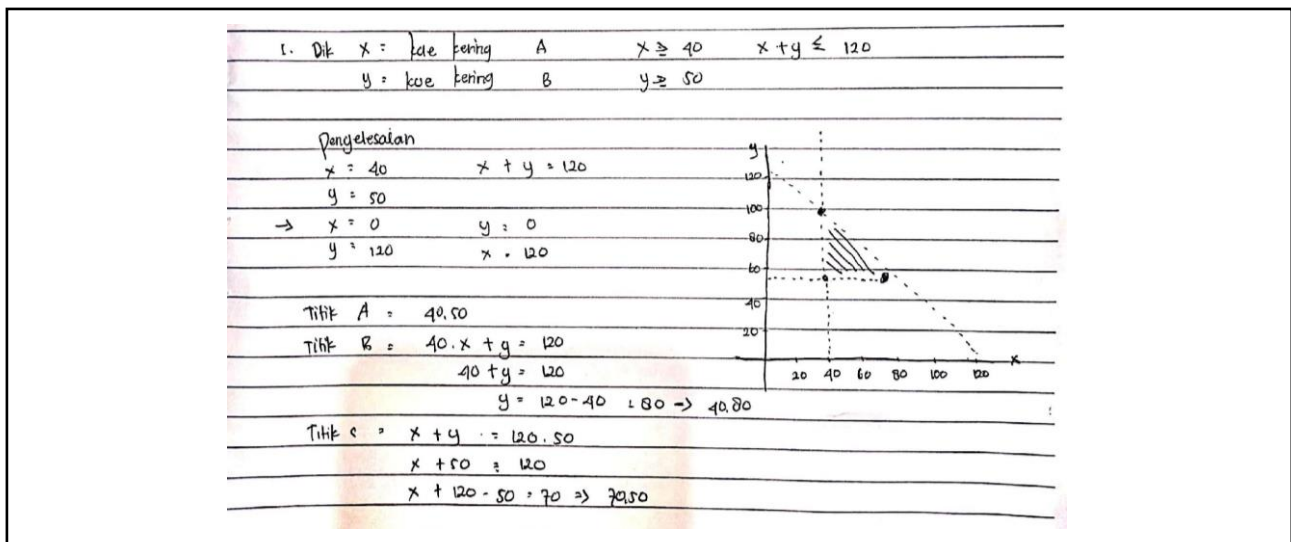 1. Dik x = kue kering A x ≥ 40 x + y ≤ 120
y = kue kering B y ≥ 50
Pengelesaian
x = 40 x + y = 120
y = 50
→ x = 0 y = 0
y = 120 x = 120
Titik A = 40,50
Titik B = 40. x + y = 120
40 + y = 120
y = 120 - 40 = 80 -> 40,80
Titik C = x + y = 120.50
x + 50 = 120
x + 120 - 50 = 70 => 70,50
y
120
100
80
60
40
20
20 40 60 80 100 120 x